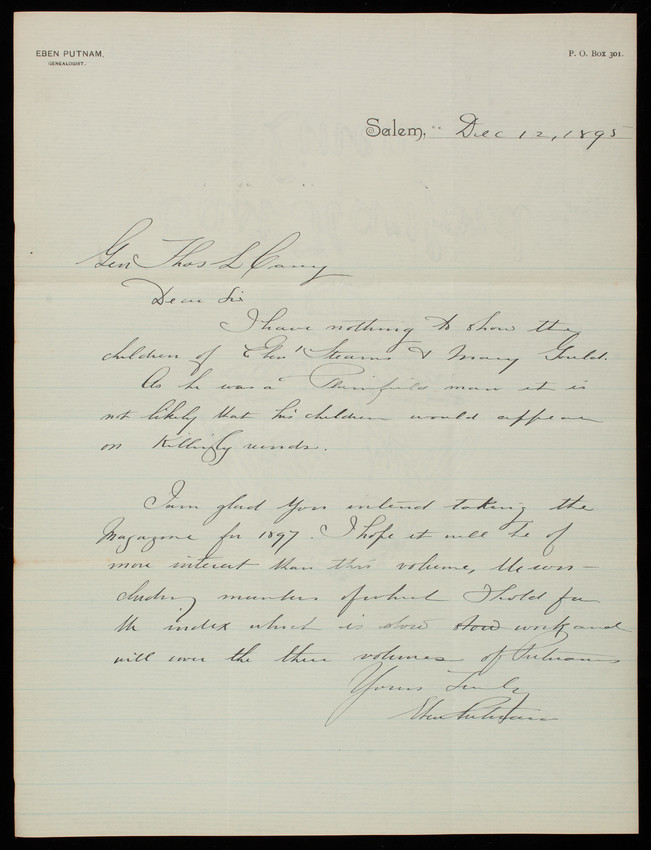 EBEN PUTNAM,
GENEALOGIST.
P. O. Box 301.
Salem, Dec 12, 1895
Gen Thos L Casey
Dear Sir
I have nothing to show the
children of Eben' Stearns & Mary Gould.
As he was a Plainfield man it is
not likely that his children would appear
on Killingly records.
I am glad you intend taking the
Magazine for 1897. I hope it will be of
more interest than this volume, the con-
cluding numbers of which I hold for
the index which is slow slow work and
will cover the three volumes of Putnams
Yours Truly
Eben Putnam